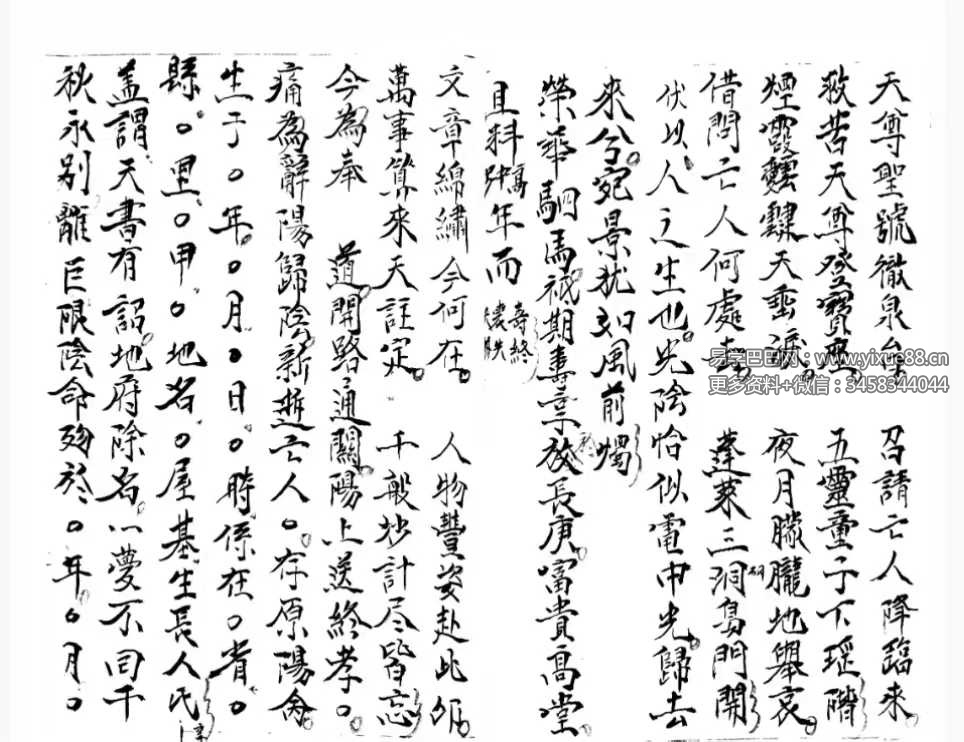 天尊聖號徹泉台 召請亡人降臨來
救苦天尊登寶座 五靈童子下瑶階
煙霞靉靆天垂淚 夜月朦朧地舉哀
借問亡人何處去 蓬萊三洞島門開
伏以人之生也光陰恰似電中光歸去
來兮宛景犹如風前燭
榮華駟馬祇期壽享於長庚富貴高堂
且料年而壽終
文章綿繡今何在 人物豐姿赴此
萬事算來天註定 千般妙計尽皆忘
今為奉 道開路通關陽上送終孝○
痛為辭陽歸陰新逝亡人○存原陽命
生于○年○月○日○時係在○省○
縣○里○甲○地名○屋基生長人氏
盖謂天書有詔地府除名一夢不回千
秋永别離巨限陰命殁於○年○月○
易学巴巴网:www.yixue88.cn
更多资料+微信:3458344044